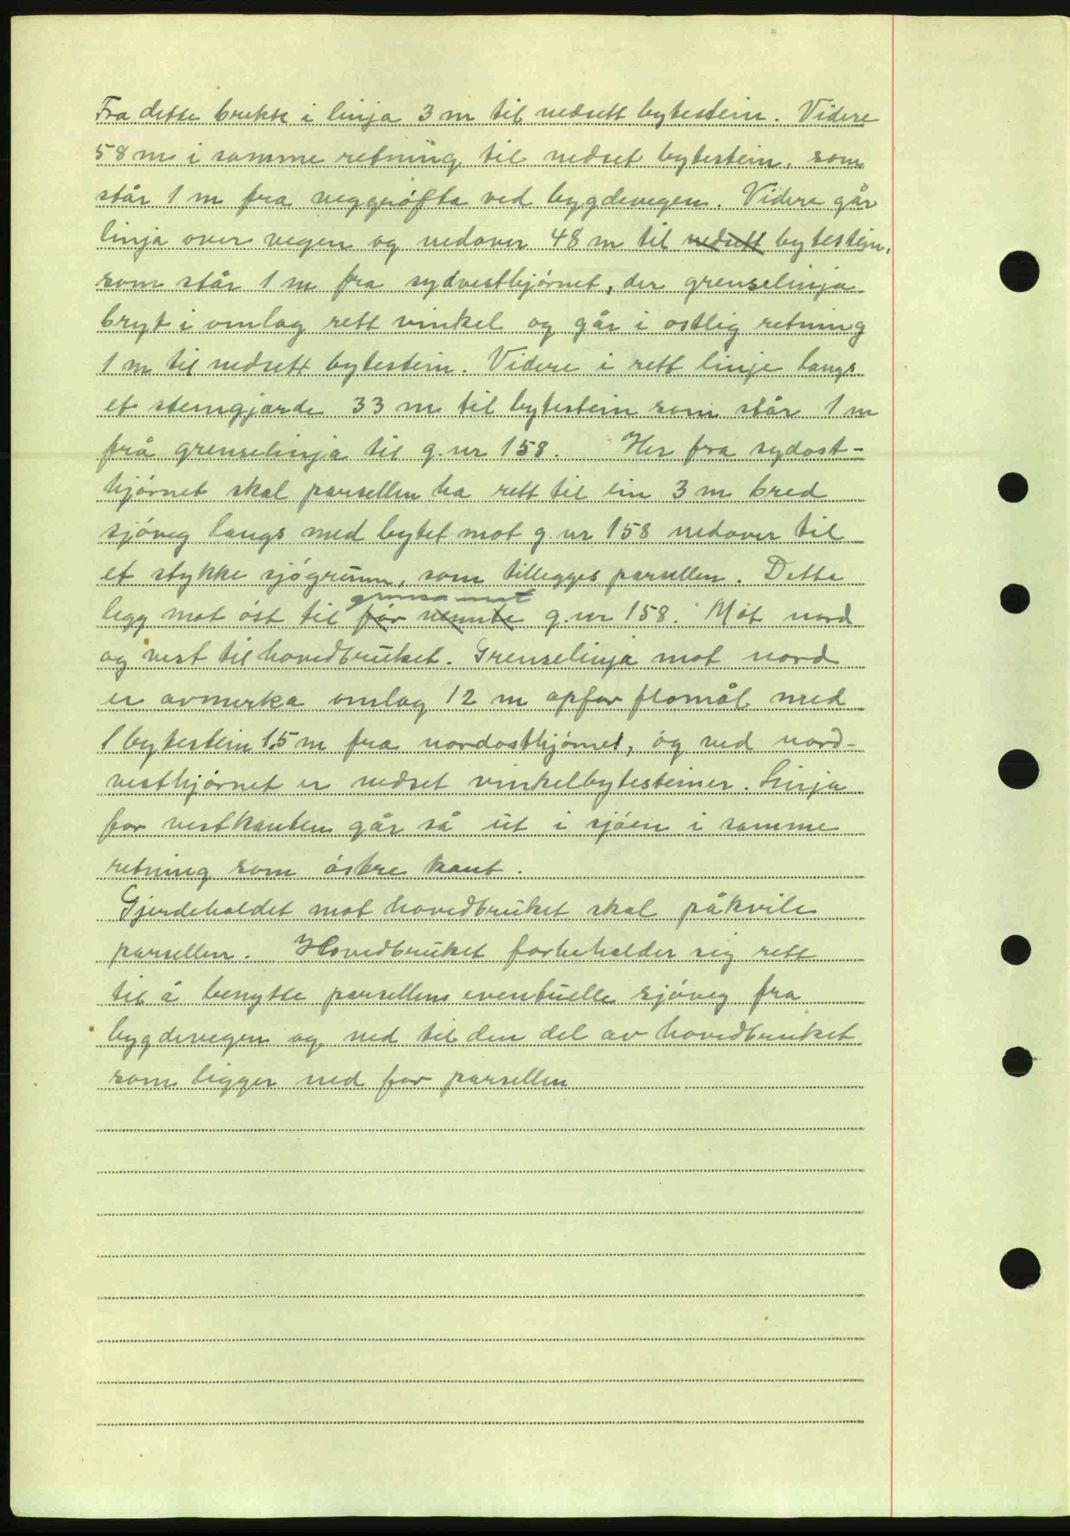 Fra dette brekk i linja 3 m til nedsett bytestein. Videre
58 m i samme retning til nedset bytestein, som
står 1 m fra veggrófta ved bygdevegen. Videre går
linja over vegen og nedover 48 m til nedsett bytestein,
som står 1 m fra sydvesthjórnet, der grenselinja
bryt i omlag rett vinkel og går i ostlig retning
1 m til nedsett bytestein. Videre i rett linje langs
et steingjærde 33 m til bytestein som står 1 m
frå grenselinja til g.nr 158. Her fra sydost-
hjórnet skal parsellen ha rett til ein 3 m bred
sjóveg langs med bytet mot g.nr 158 nedover til
et stykke sjógrunn, som tillegges parsellen. Dette
grensa mot
legg mot óst til før nemnte g.nr 158. Mot nord
og vest til hovedbruket. Grenselinja mot nord
er avmerka omlag 12 m opfor flomål med
1 bytestein 1.5 m fra nordosthjórnet, og ved nord-
vesthjórnet er nedset vinkelbytesteiner. Linja
for vestkanten går så ut i sjóen i samme
retning som óstre kant.
Gjerdeholdet mot hovedbruket skal påkvile
parsellen. Hovedbruket forbeholder sig rett
til å benytte parsellens eventuelle sjóveg fra
bygdevegen og ned til den del av hovedbruket
som ligger ned for parsellen